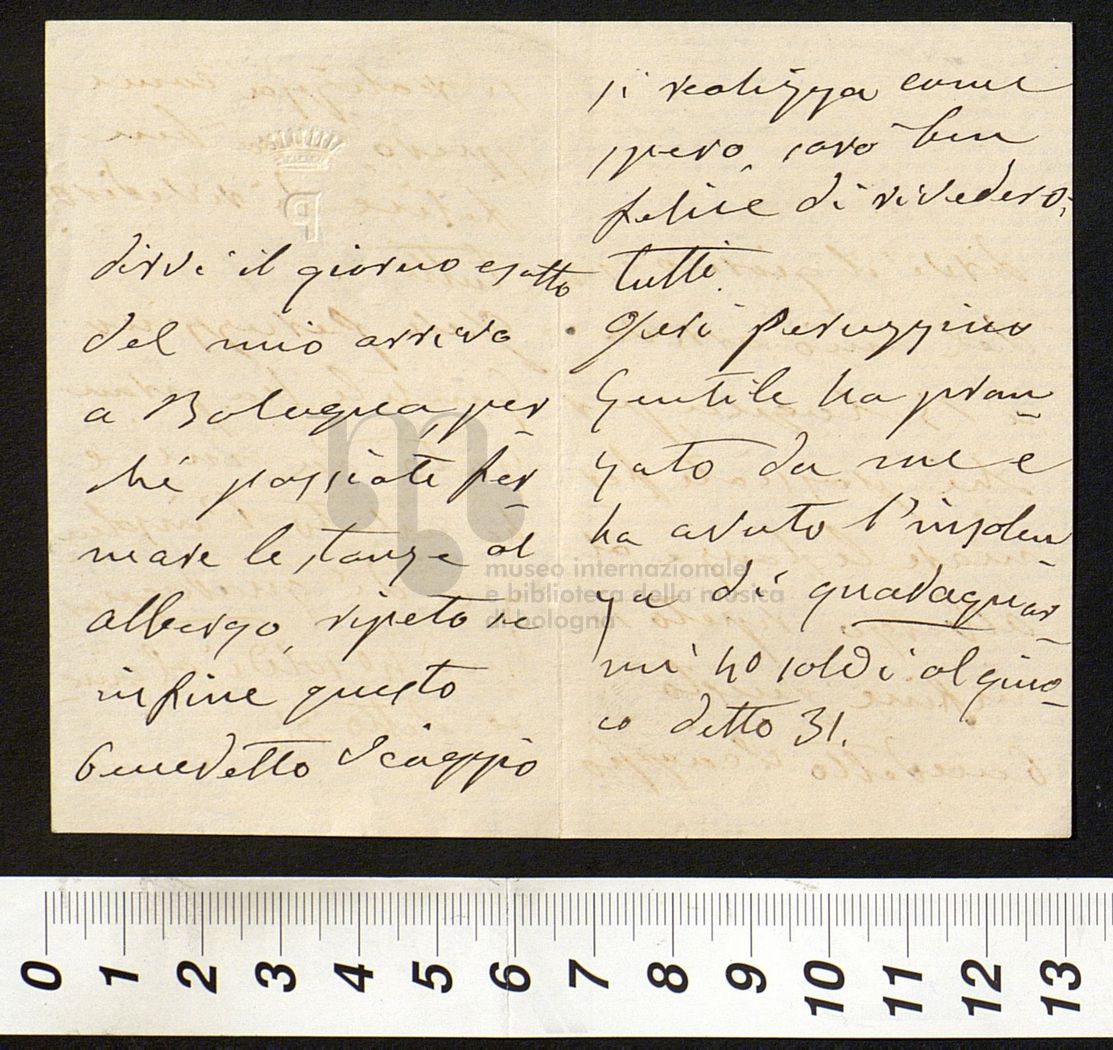 dirvi il giorno esatto
del mio arrivo
a Bologna, per
ché possiate fer
mare le stanze al
albergo, ripeto se
infine questo
benedetto viaggio
si realizza come
spero, sarò ben
felice di rivedervi
tutti.
Ieri Peruzzino
Gentile ha pran
zato da me e
ha avuto l'insolen
za di guadagnar
mi 40 soldi al giuo
co detto 31.
P
museo internazionale
e biblioteca della musica
di bologna
0 1 2 3 4 5 6 7 8 9 10 11 12 13